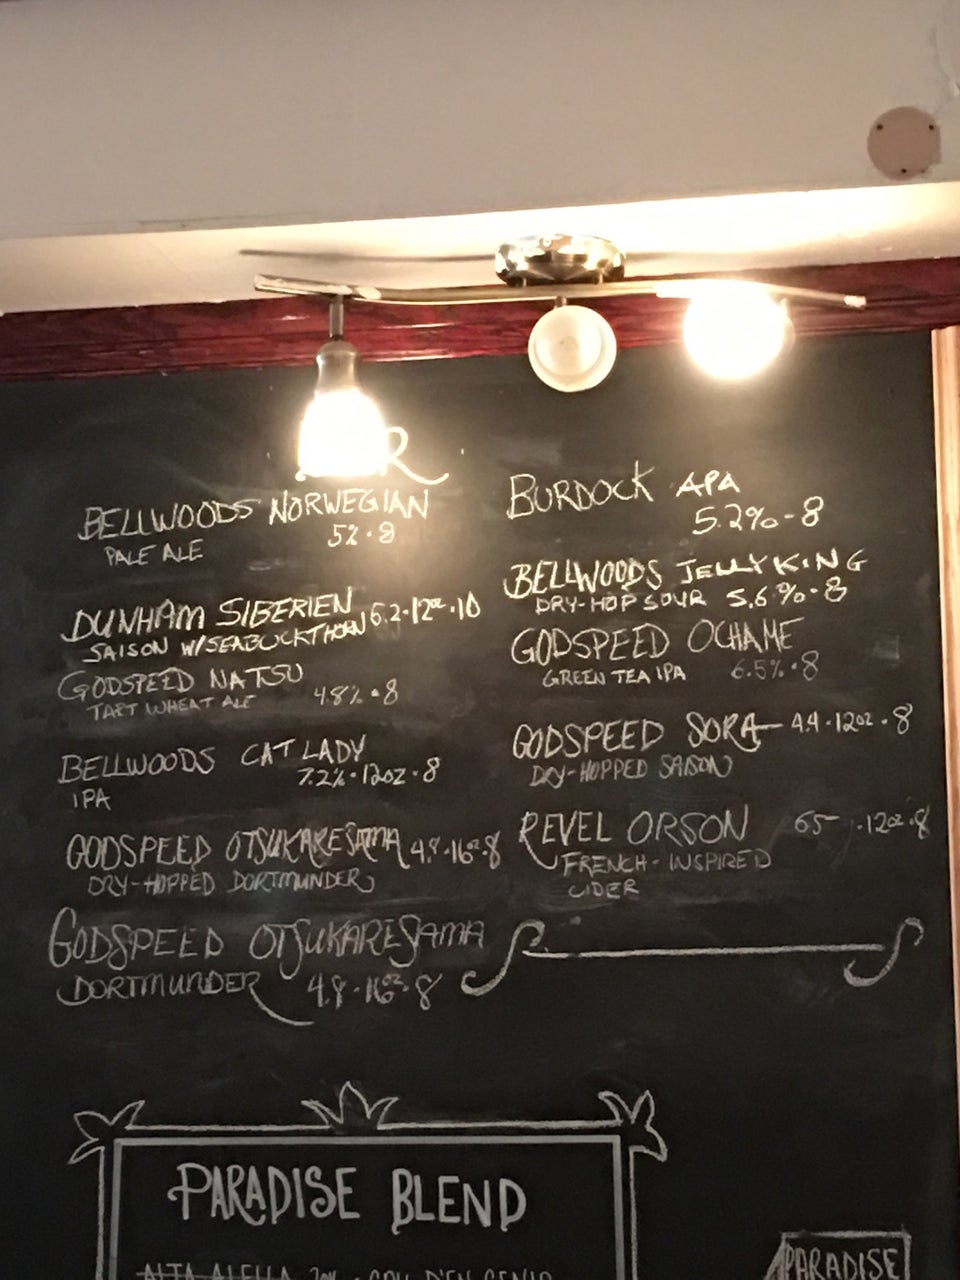 BELLWOODS NORWEGIAN
PALE ALE 5% · 8
DUNHAM SIBERIEN 6.2 · 12oz · 10
SAISON W/SEABUCKTHORN
GODSPEED NATSU
TART WHEAT ALE 4.8% · 8
BELLWOODS CAT LADY
IPA 7.2% · 12oz · 8
GODSPEED OTSUKARESAMA 4.8 · 16oz · 8
DRY-HOPPED DORTMUNDER
GODSPEED OTSUKARESAMA
DORTMUNDER 4.8 · 16oz · 8
BURDOCK APA
5.2% - 8
BELLWOODS JELLY KING
DRY-HOP SOUR 5.6% · 8
GODSPEED OCHAME
GREEN TEA IPA 6.5% · 8
GODSPEED SORA 4.4 · 12oz · 8
DRY-HOPPED SAISON
REVEL ORSON 65 · 12oz · 8
FRENCH-INSPIRED
CIDER
PARADISE BLEND
ALTA ALELLA
PARADISE